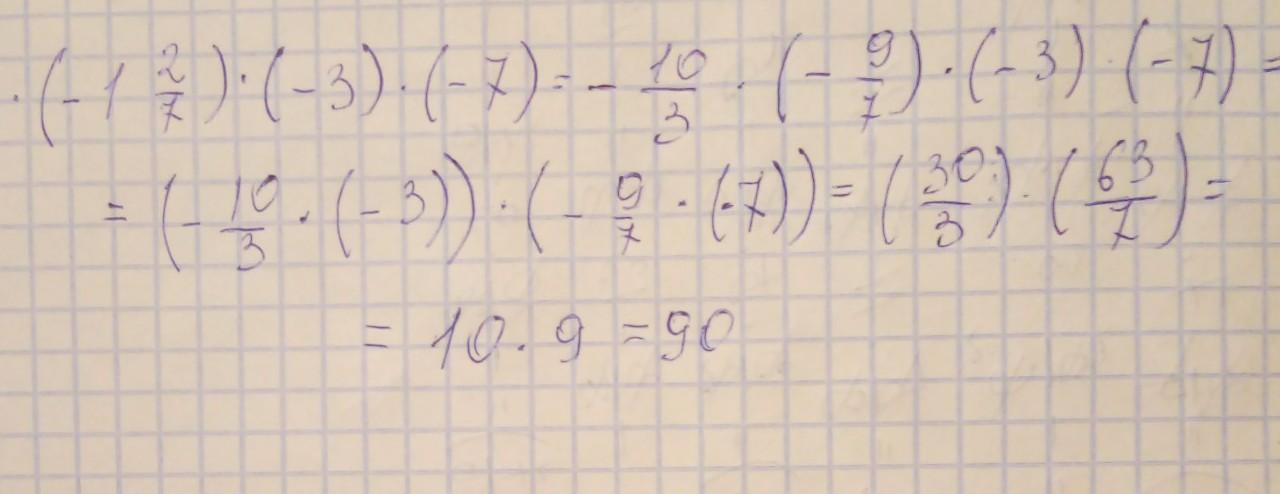 · (-1 2/7) · (-3) · (-7) = - 10/3 · (- 9/7) · (-3) · (-7) =
= (- 10/3 · (-3)) · (- 9/7 · (-7)) = (30/3) · (63/7) =
= 10 · 9 = 90